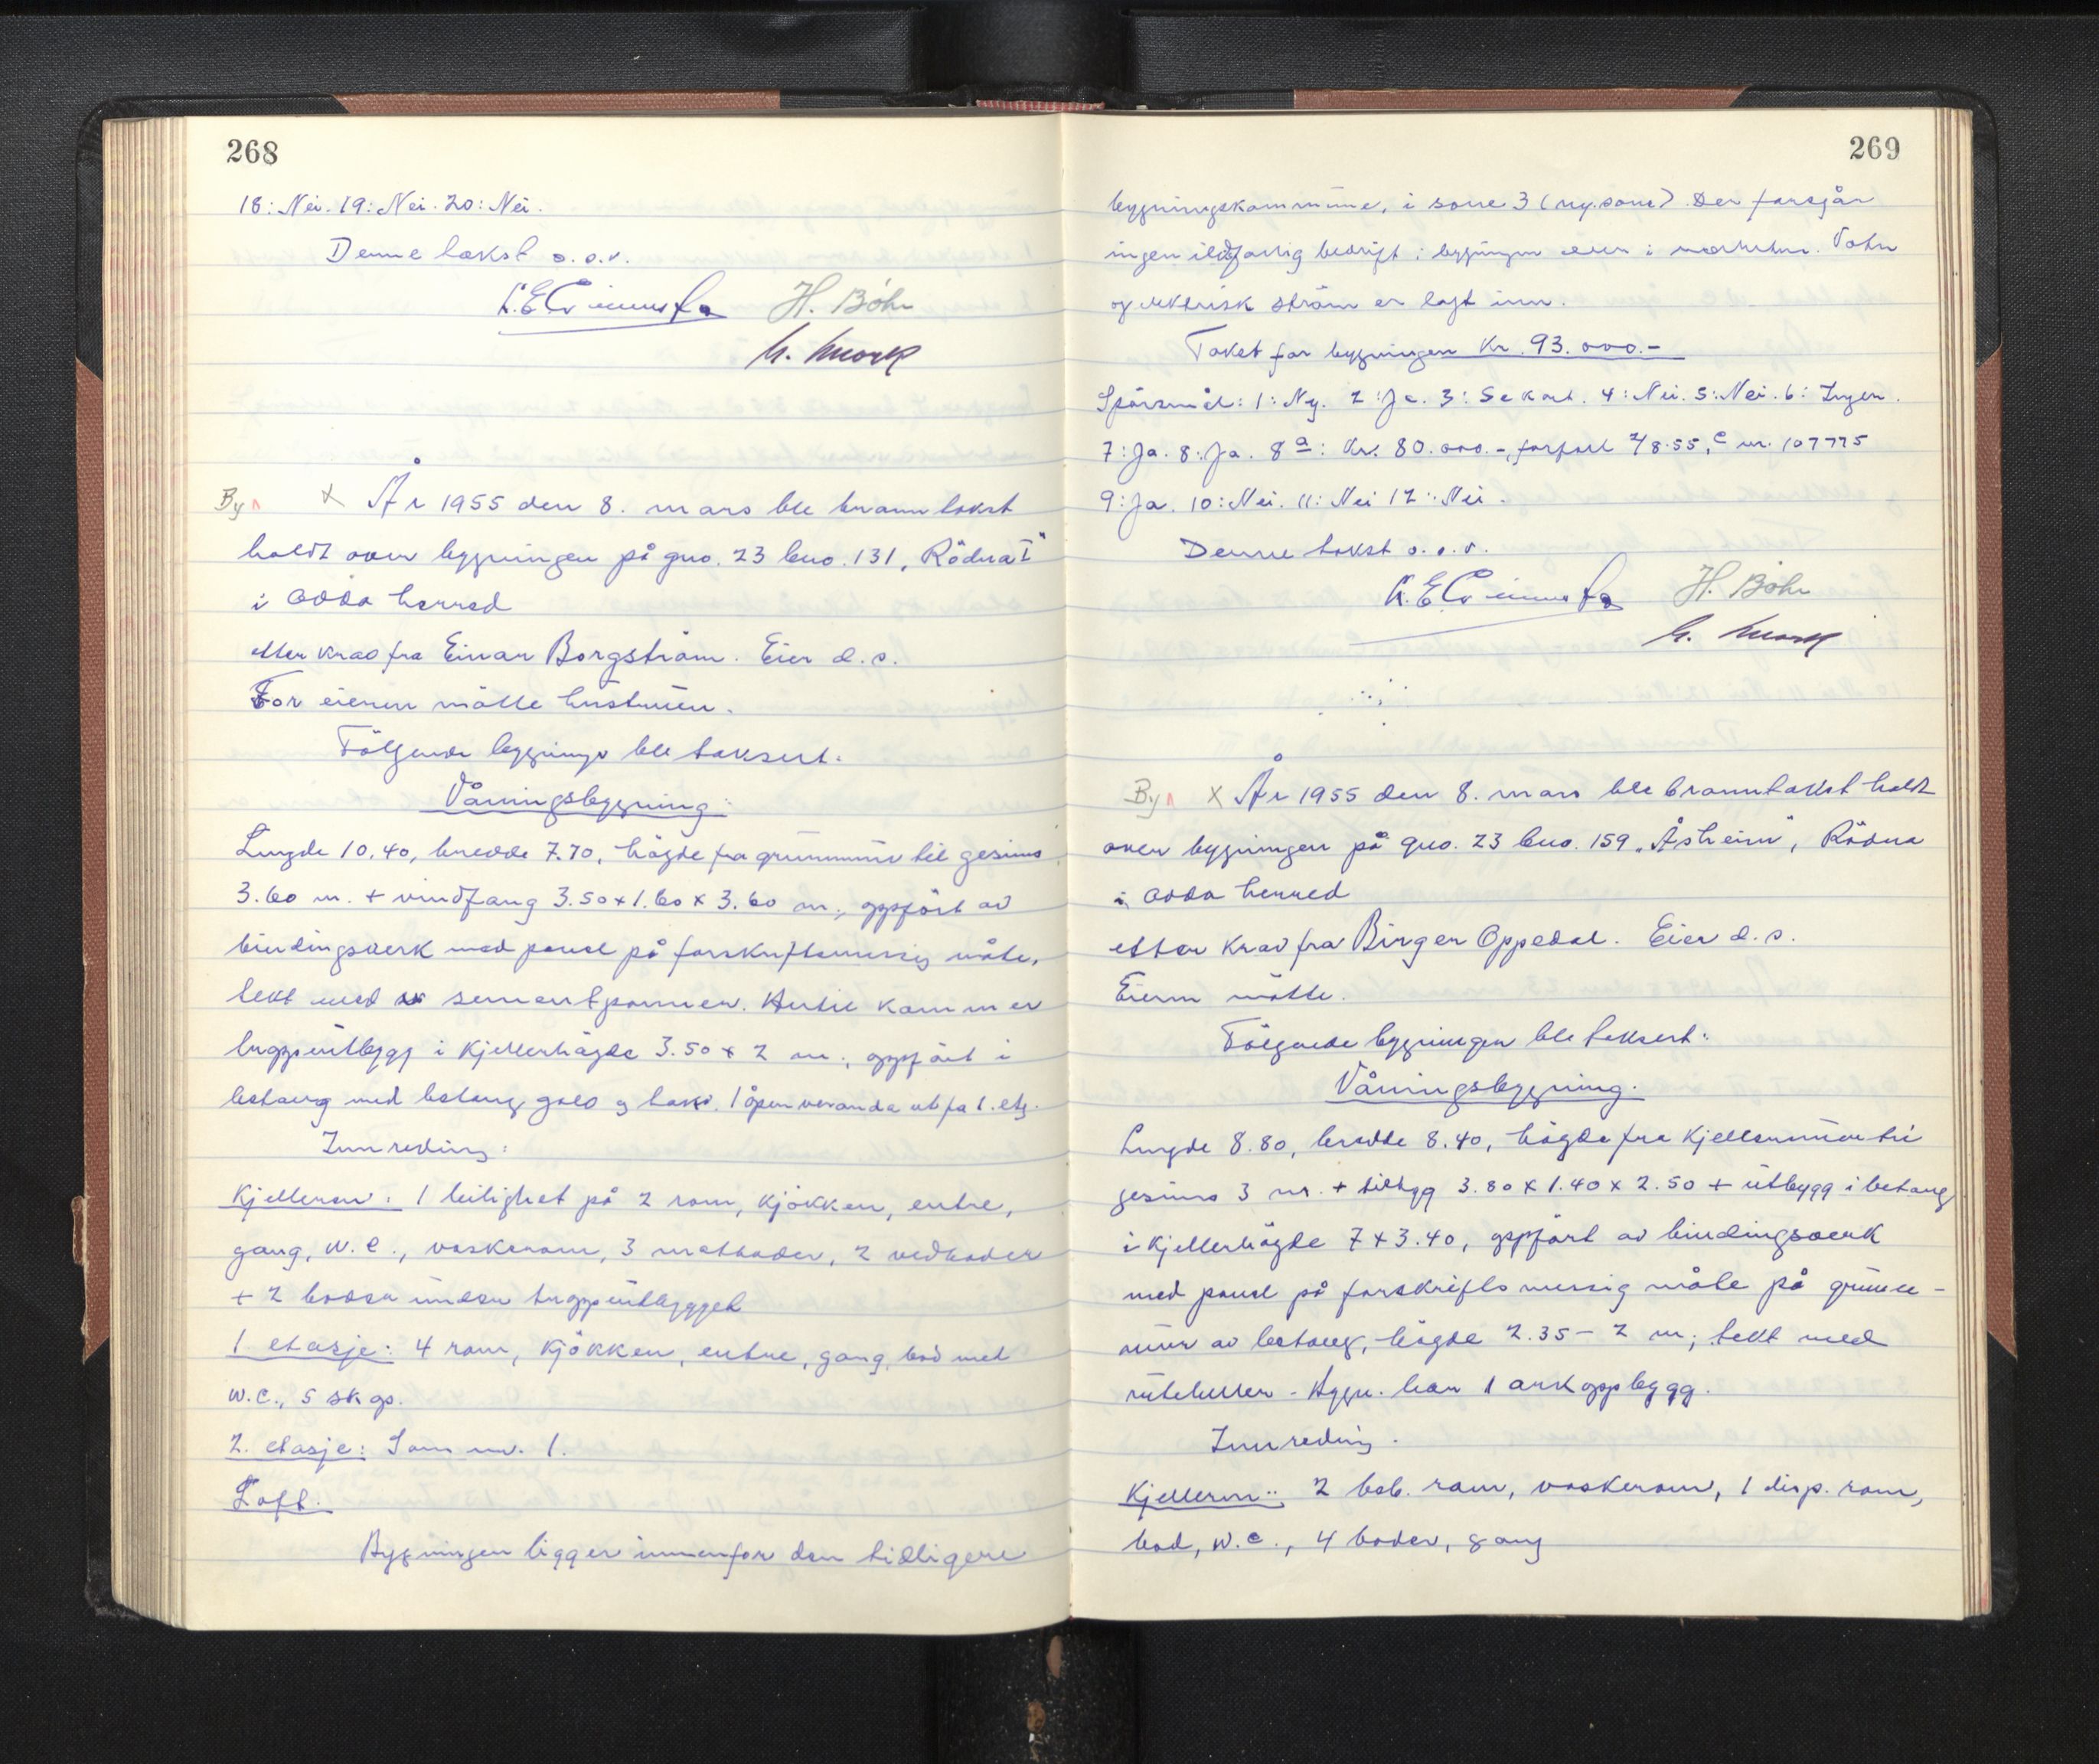 268
18: Nei. 19: Nei. 20: Nei.
Denne takst o.s.v.
H. Böhr
By X År 1955 den 8. mars ble branntakst
holdt over bygningen på gno. 23 bno. 131, Rödna I"
i Odda herred
etter krav fra Einar Borgström. Eier d.s.
For eieren mötte hustruen.
Fölgende bygninger ble taksert:
Våningsbygning:
Lengde 10.40, bredde 7.70, högde fra grunnmur til gesims
3.60 m. + vindfang 3.50 x 1.60 x 3.60 m., oppfört av
bindingsverk med panel på forskriftsmessig måte,
tekt med sementpanner. Hertil kommer
trappeutbygg i kjellerhögde 3.50 x 2 m., oppfört i
betong med betong golv og tak. 1 åpen veranda ut fra 1. etg.
Innreding:
Kjelleren: 1 leilighet på 2 rom, kjökken, entre,
gang, w.c., vaskerom, 3 matboder, 2 vedboder
+ 2 boder under trappeutbygget
1. etasje: 4 rom, kjökken, entre, gang, bad med
w.c., 5 skap.
2. etasje: Som nr. 1.
Loft.
Bygningen ligger innenfor den tidligere
269
bygningskommune, i sone 3 (ny sone). Der foregår
ingen ildsfarlig bedrift i bygningen eller i nærheten. Vatn
og elektrisk ström er lagt inn.
Takst for bygningen Kr. 93.000.-
Spörsmål: 1: Ny. 2: Ja. 3: Se kart. 4: Nei. 5: Nei. 6: Ingen.
7: Ja. 8: Ja. 8a: Kr. 80.000.-, forfall 7/8.55, C nr. 107775
9: Ja. 10: Nei. 11: Nei 12: Nei.
Denne takst o.s.v.
H. Böhr
By X År 1955 den 8. mars ble branntakst holdt
over bygningen på gno. 23 bno. 159 „Åsheim", Rödna
i Odda herred
etter krav fra Birger Oppedal. Eier d.s.
Eieren mötte.
Fölgende bygninger ble taksert:
Våningsbygning.
Lengde 8.80, bredde 8.40, högde fra kjellermur til
gesims 3 m. + tilbygg 3.80 x 1.40 x 2.50 + utbygg i betong
i kjellerhögde 7 x 3.40, oppfört av bindingsverk
med panel på forskriftsmessig måte på grunn-
mur av betong, högde 2.35 - 2 m., tekt med
ruteheller. Bygn. har 1 arkoppbygg.
Innreding.
Kjelleren: 2 beb. rom, vaskerom, 1 disp. rom,
bad, w.c., 4 boder, gang